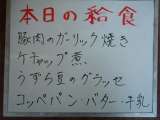 本日の給食
豚肉のガーリック焼き
ケチャップ煮
うずら豆のグラッセ
コッペパン・バター・牛乳